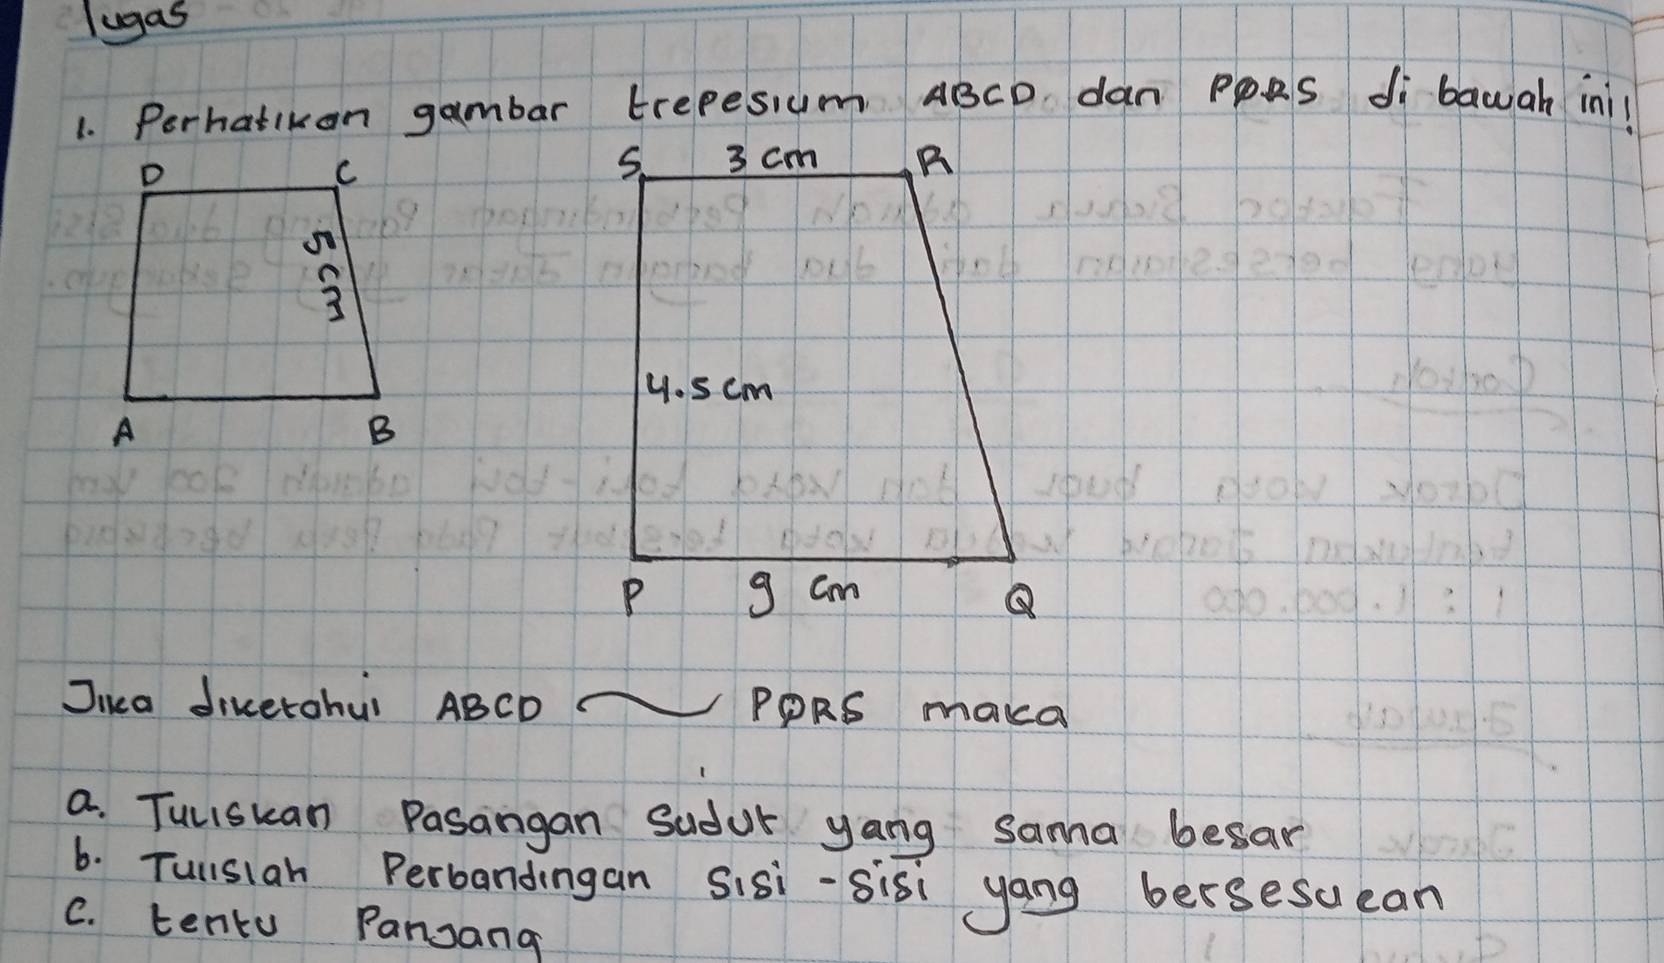 Tugas
1. Perhatikan gambar trepesium ABCD dan PQRS di bawah ini!
D C S 3 cm R
5 cm
4.5 cm
A B
P 9 cm Q
Jika diketahui ABCD ~ PQRS maka
a. Tuliskan Pasangan Sudut yang sama besar
b. Tulislah Perbandingan Sisi-Sisi yang bersesuean
c. tentu Panjang